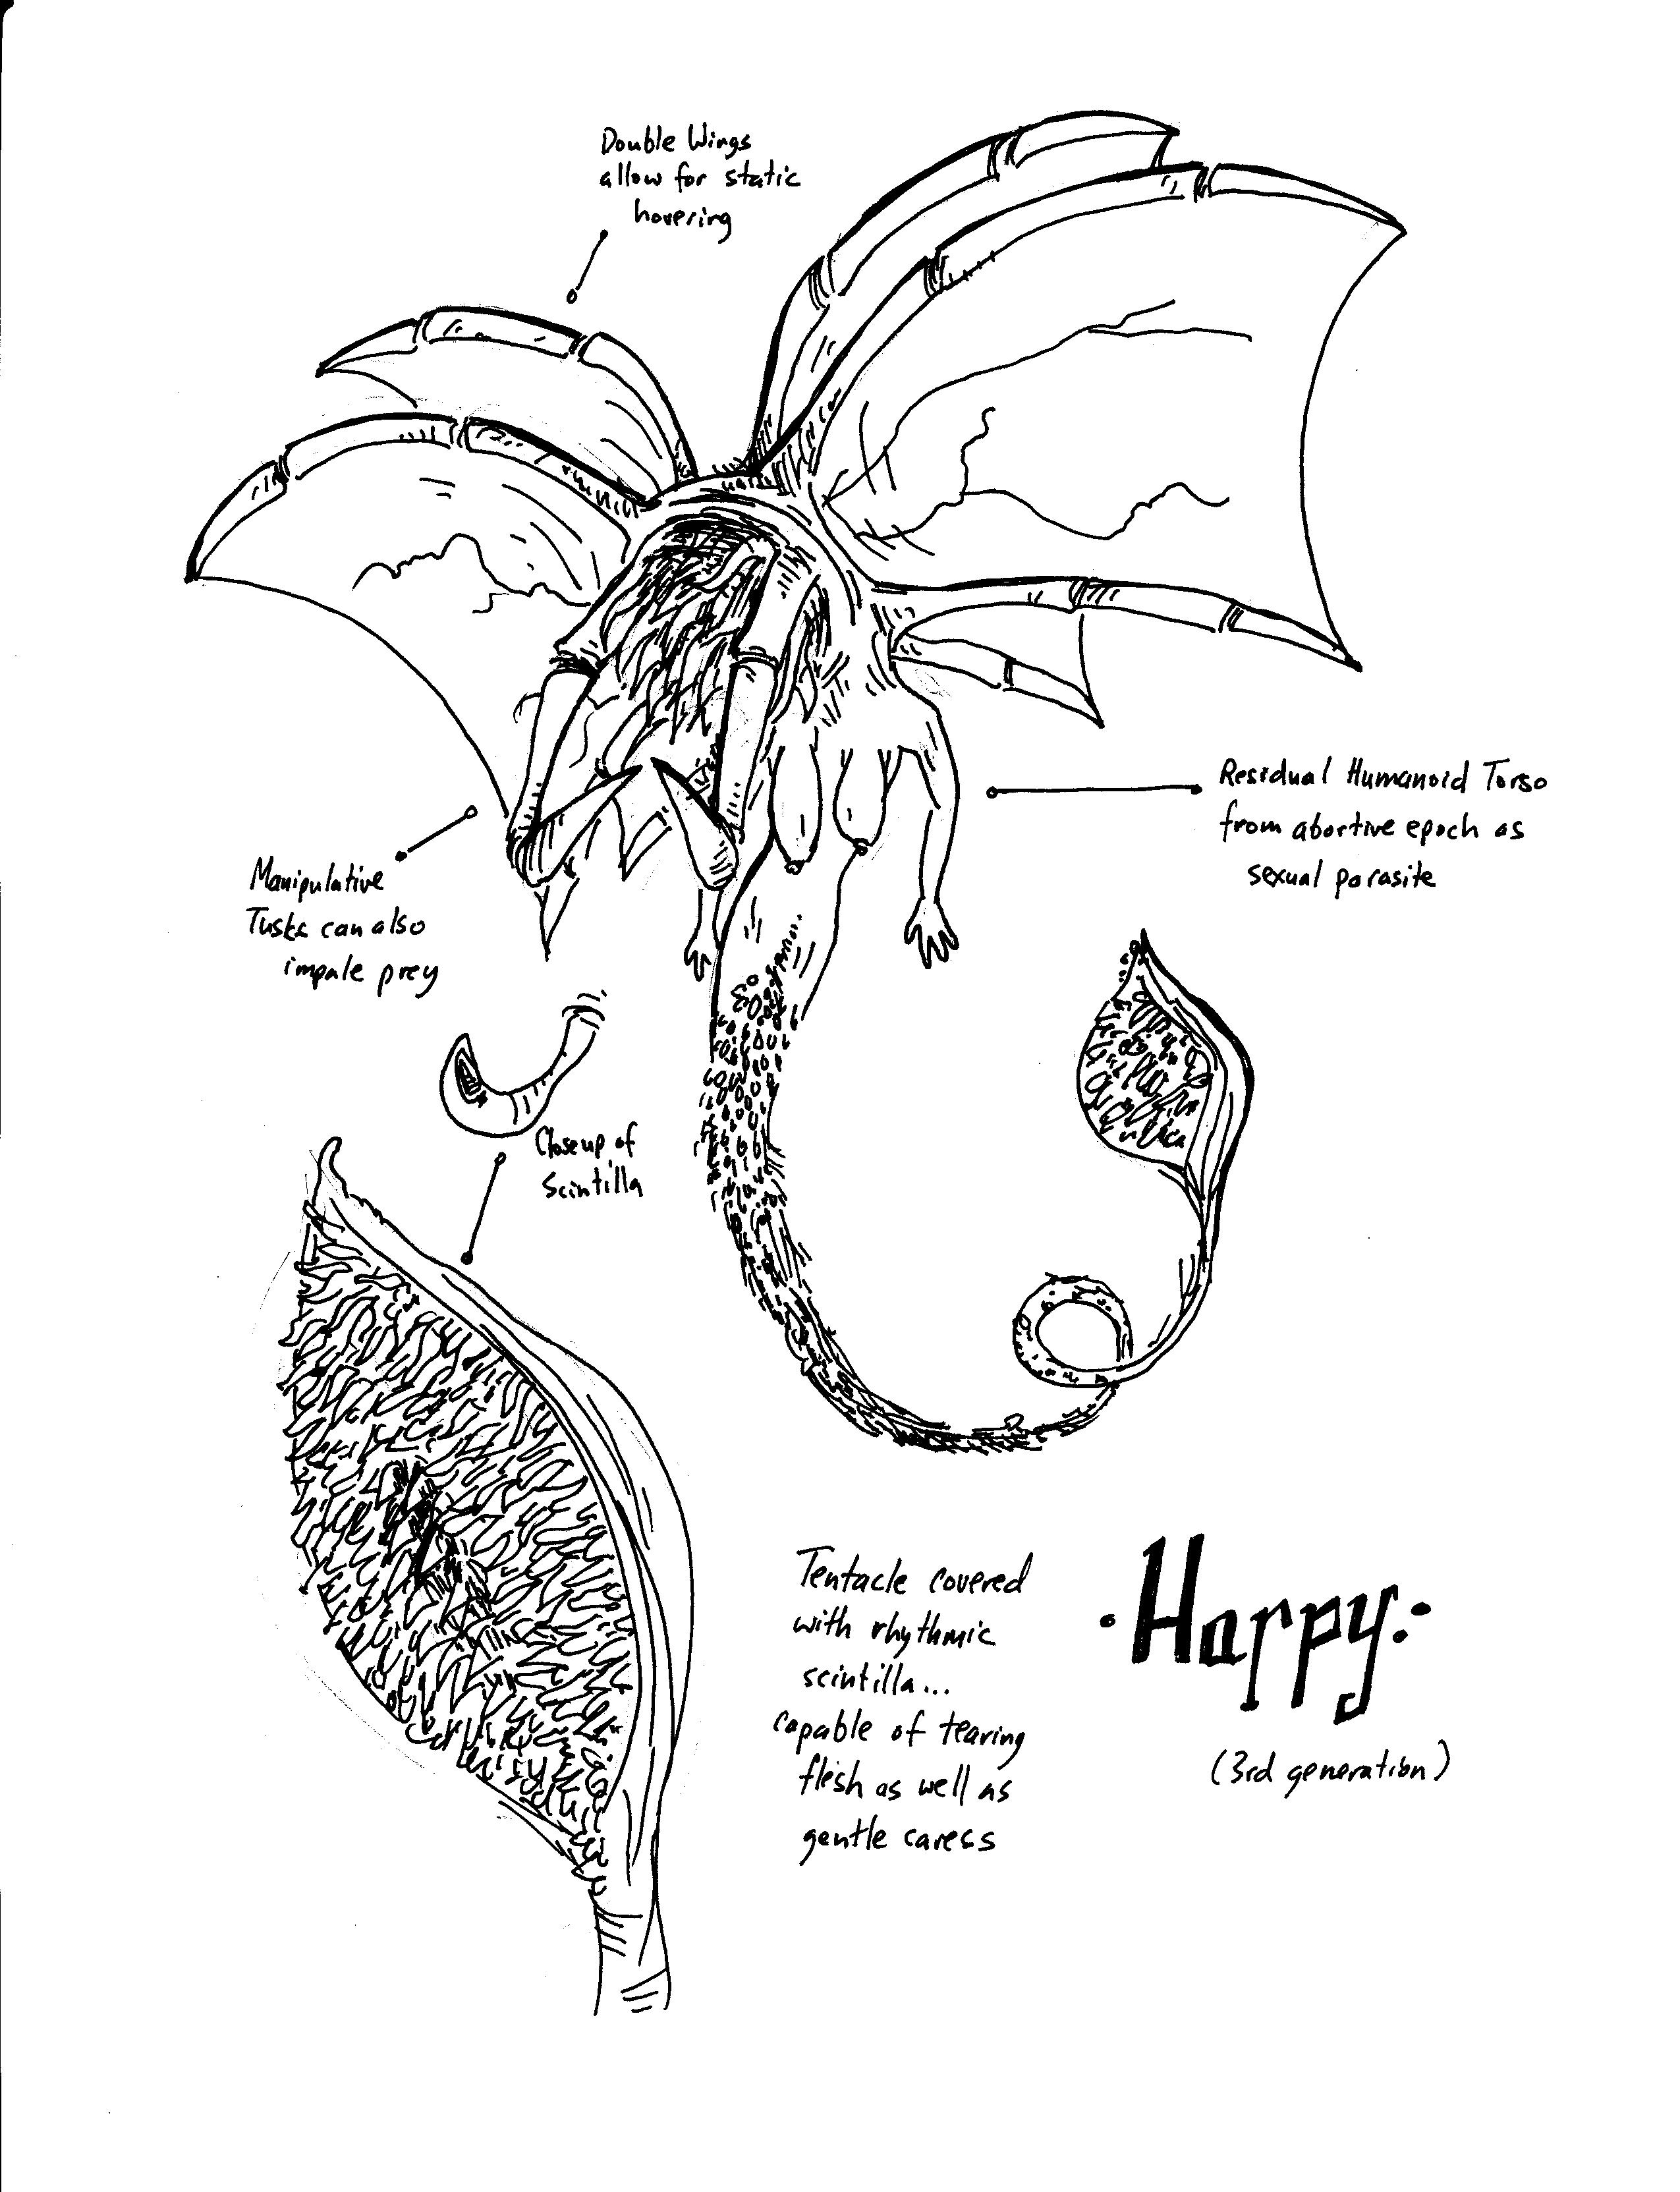 Double Wings
allow for static
hovering
Residual Humanoid Torso
from abortive epoch as
sexual parasite
Manipulative
Tusks can also
impale prey
Closeup of
Scintilla
Tentacle covered
with rhythmic
scintilla...
capable of tearing
flesh as well as
gentle caress
·Harpy:·
(3rd generation)